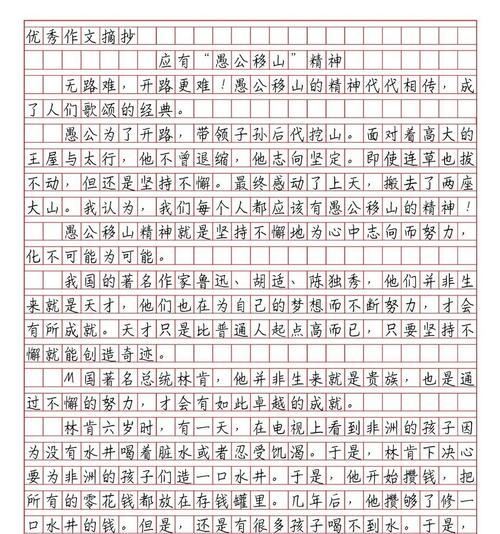 优秀作文摘抄
应有“愚公移山”精神
无路难，开路更难！愚公移山的精神代代相传，成
了人们歌颂的经典。
愚公为了开路，带领子孙后代挖山。面对着高大的
王屋与太行，他不曾退缩，他志向坚定。即使连草也拔
不动，但还是坚持不懈。最终感动了上天，搬去了两座
大山。我认为，我们每个人都应该有愚公移山的精神！
愚公移山精神就是坚持不懈地为心中志向而努力，
化不可能为可能。
我国的著名作家鲁迅、胡适、陈独秀，他们并非生
来就是天才，他们也在为自己的梦想而不断努力，才会
有所成就。天才只是比普通人起点高而已，只要坚持不
懈就能创造奇迹。
M国著名总统林肯，他并非生来就是贵族，也是通
过不懈的努力，才会有如此卓越的成就。
林肯六岁时，有一天，在电视上看到非洲的孩子因
为没有水井喝着脏水或者忍受饥渴。于是，林肯下决心
要为非洲的孩子们造一口水井。于是，他开始攒钱，把
所有的零花钱都放在存钱罐里。几年后，他攒够了修一
口水井的钱。但是，还是有很多孩子喝不到水。于是，